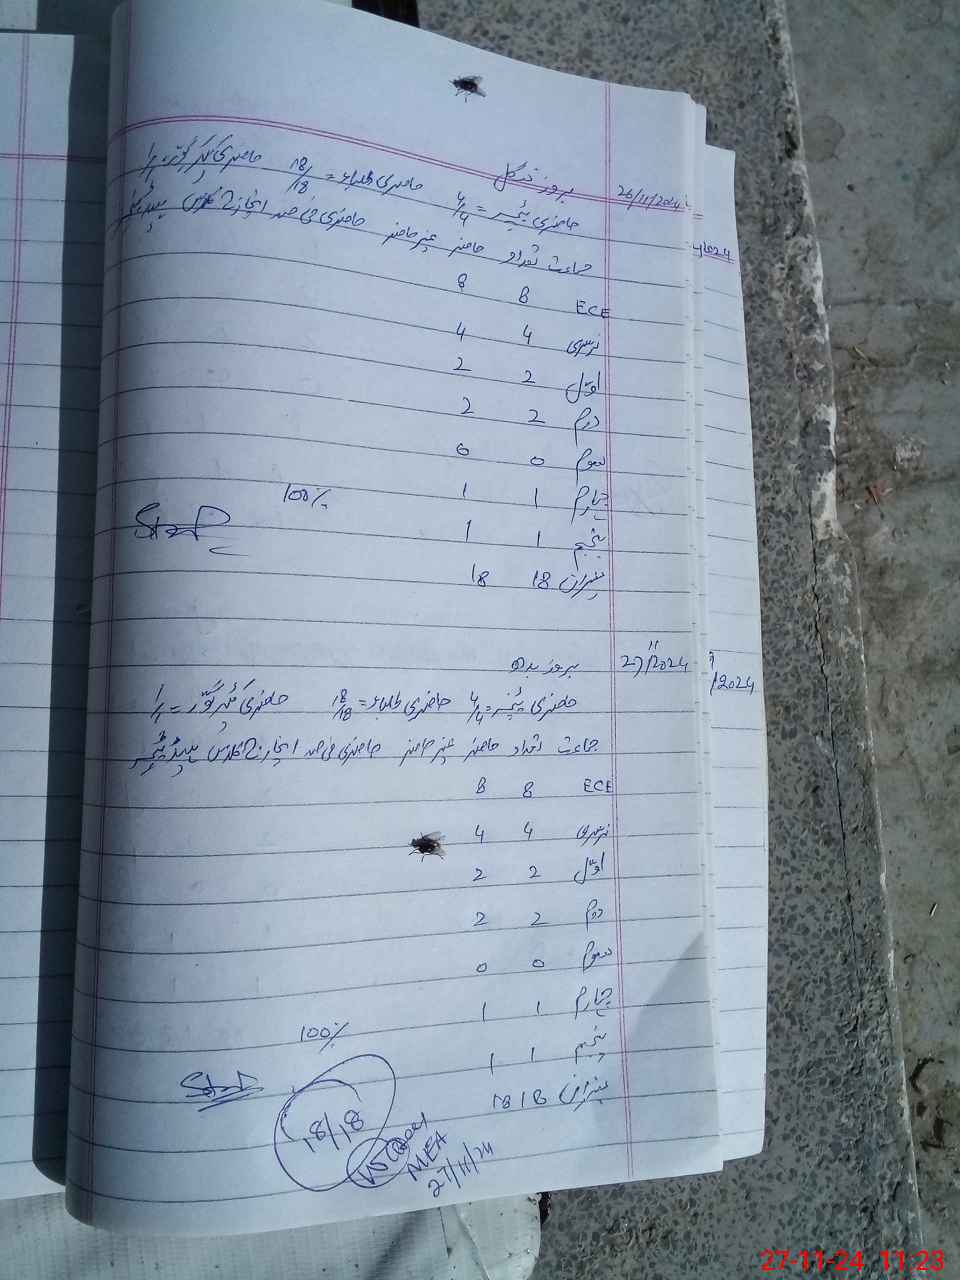 26/11/2024 بروز منگل
حاضری ٹیچر = 4/4 حاضری طلباء = 18/18 حاضری کیئر گیور = 1/1
جماعت تعداد حاضر غیر حاضر حاضری فی صد انچارج کلاس ہیڈ ٹیچر
ECE 8 8
نرسری 4 4
اول 2 2
دوم 2 2
سوم 0 0
چہارم 1 1 100%
پنجم 1 1
میزان 18 18
27/11/2024 بروز بدھ
حاضری ٹیچر = 4/4 حاضری طلباء = 18/18 حاضری کیئر گیور = 1/1
جماعت تعداد حاضر غیر حاضر حاضری فی صد انچارج کلاس ہیڈ ٹیچر
ECE 8 8
نرسری 4 4
اول 2 2
دوم 2 2
سوم 0 0
چہارم 1 1 100%
پنجم 1 1
میزان 18 18
18/18
MEA
27/11/24
/2024
/2024
27-11-24 11:23